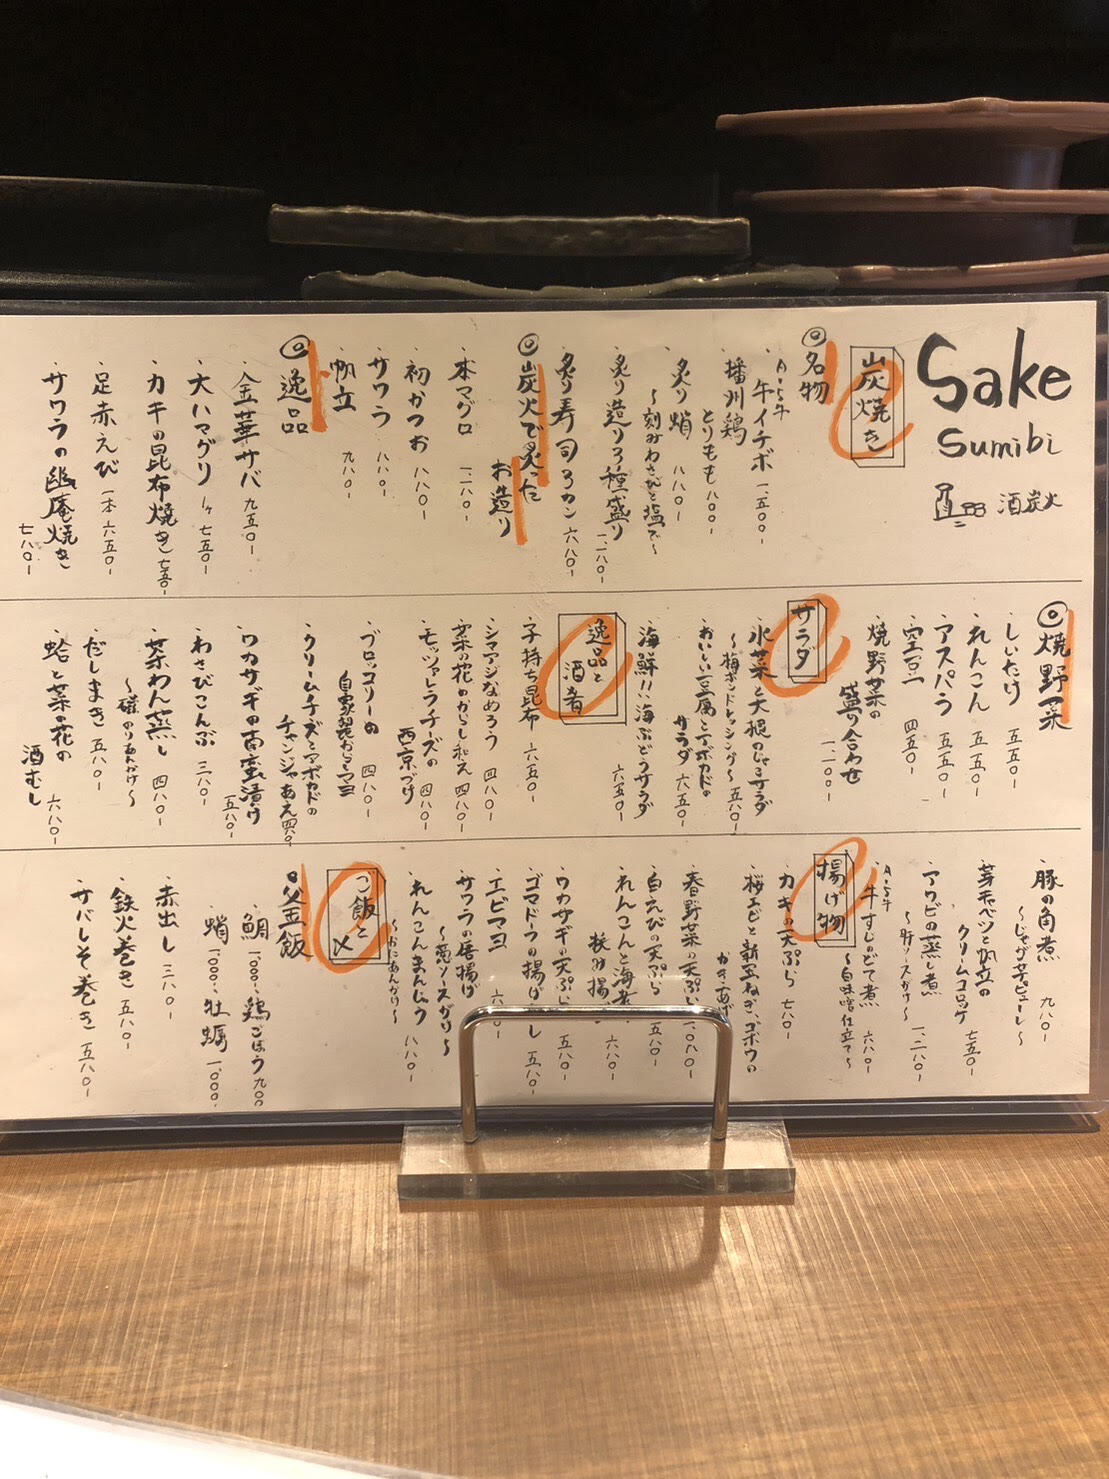 Sake
Sumibi
酒炭火
炭焼き
◎名物
・A5牛 牛イチボ 一五〇〇-
・播州鶏 とりもも 八〇〇-
・炙り蛸 八八〇-
〜刻みわさびと塩で〜
・炙り造り3種盛り 一、二八〇-
・炙り寿司3カン 六八〇-
◎炭火で炙ったお造り
・本マグロ 一、二八〇-
・初かつお 八八〇-
・サワラ 八八〇-
・帆立 九八〇-
◎逸品
・金華サバ 九五〇-
・大ハマグリ 1ヶ 七五〇-
・カキの昆布焼き 七五〇-
・足赤えび 一本 六五〇-
・サワラの幽庵焼き 七八〇-
◎焼野菜
・しいたけ 五五〇-
・れんこん 五五〇-
・アスパラ 五五〇-
・空豆 四五〇-
・焼野菜の盛り合わせ 一、一〇〇-
サラダ
・水菜と大根のじゃこサラダ
〜梅ドレッシング〜 五八〇-
・おいしい豆腐とアボカドのサラダ 六五〇-
・海鮮!!海ぶどうサラダ 六五〇-
逸品と酒肴
・子持ち昆布 六五〇-
・シマアジなめろう 四八〇-
・菜の花のからし和え 四八〇-
・モッツァレラチーズの西京づけ 四八〇-
・ブロッコリーの自家製からしマヨ 四八〇-
・クリームチーズとアボカドのチャンジャあえ 四八〇-
・ワカサギの南蛮漬け 五八〇-
・わさびこんぶ 三八〇-
・茶わん蒸し 四八〇-
〜磯のりあんかけ〜
・だしまき 五八〇-
・蛤と菜の花の酒むし 六八〇-
・豚の角煮 九八〇-
〜じゃが芋ピューレ〜
・芽キャベツと帆立のクリームコロッケ 七五〇-
・アワビの蒸し煮 一、二八〇-
〜肝ソースがけ〜
・A5牛 牛すじのどて煮 六八〇-
〜白味噌仕立て〜
揚げ物
・カキの天ぷら 七八〇-
・桜エビと新玉ねぎ、ゴボウのかきあげ
・春野菜の天ぷら 一、〇八〇-
・白えびの天ぷら 五八〇-
・れんこんと海老 挟み揚 六八〇-
・ワカサギの天ぷら 五八〇-
・ゴマドウフの揚げ し 五八〇-
・エビマヨ 六
・サワラの唐揚げ
〜葱ソースがけ〜
・れんこんまんじゅう 八八〇-
〜かにあんかけ〜
ご飯と〆
◎釜飯
・鯛 一、〇〇〇- ・鶏ごぼう 九〇〇
・蛸 一、〇〇〇- ・牡蠣 一、〇〇〇-
・赤出し 三八〇-
・鉄火巻き 五八〇-
・サバしそ巻き 五八〇-